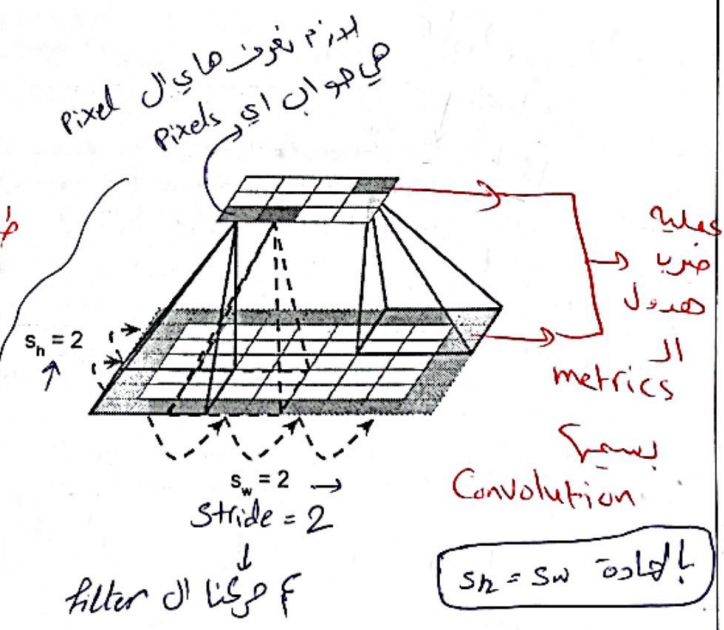 لازم نعرف هاي ال pixel
هي جواب اي pixels
عملية
ضرب
هدول
ال
metrics
بسميها
Convolution
s_h = 2
s_w = 2
Stride = 2
filter حركنا ال
بالعادة s_h = s_w